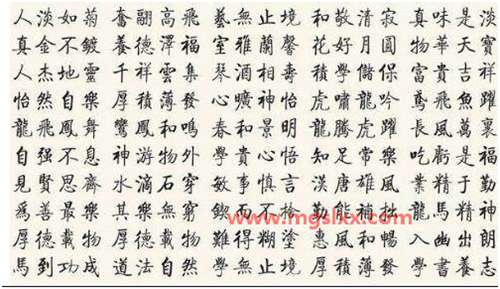 人淡如菊 奮翮高飛 藝無止境 和敬清寂 真味是淡
真金不鍍 養德澤福 室雅蘭馨 花好月圓 物華天寶
人杰地靈 千祥雲集 琴 相壽 學儲 富貴吉祥
怡然自樂 厚積薄發 心曠神怡 虎嘯龍吟 鳶飛魚躍
龍飛鳳舞 鸞鳳和鳴 春和景明 龍騰虎躍 長風萬裏
自强不息 神游物外 學貴心悟 知足常樂 吃虧是福
見賢思齊 水滴石穿 敏事慎言 漢唐雄風 業精于勤
爲善最樂 其樂無窮 鍥而不捨 勤能補拙 龍馬精神
厚德載物 厚德 難得糊塗 惠風和暢 入幽出朗
馬到功成 道法自然 學無止境 厚積薄發 學書養志
www.mgslxx.com